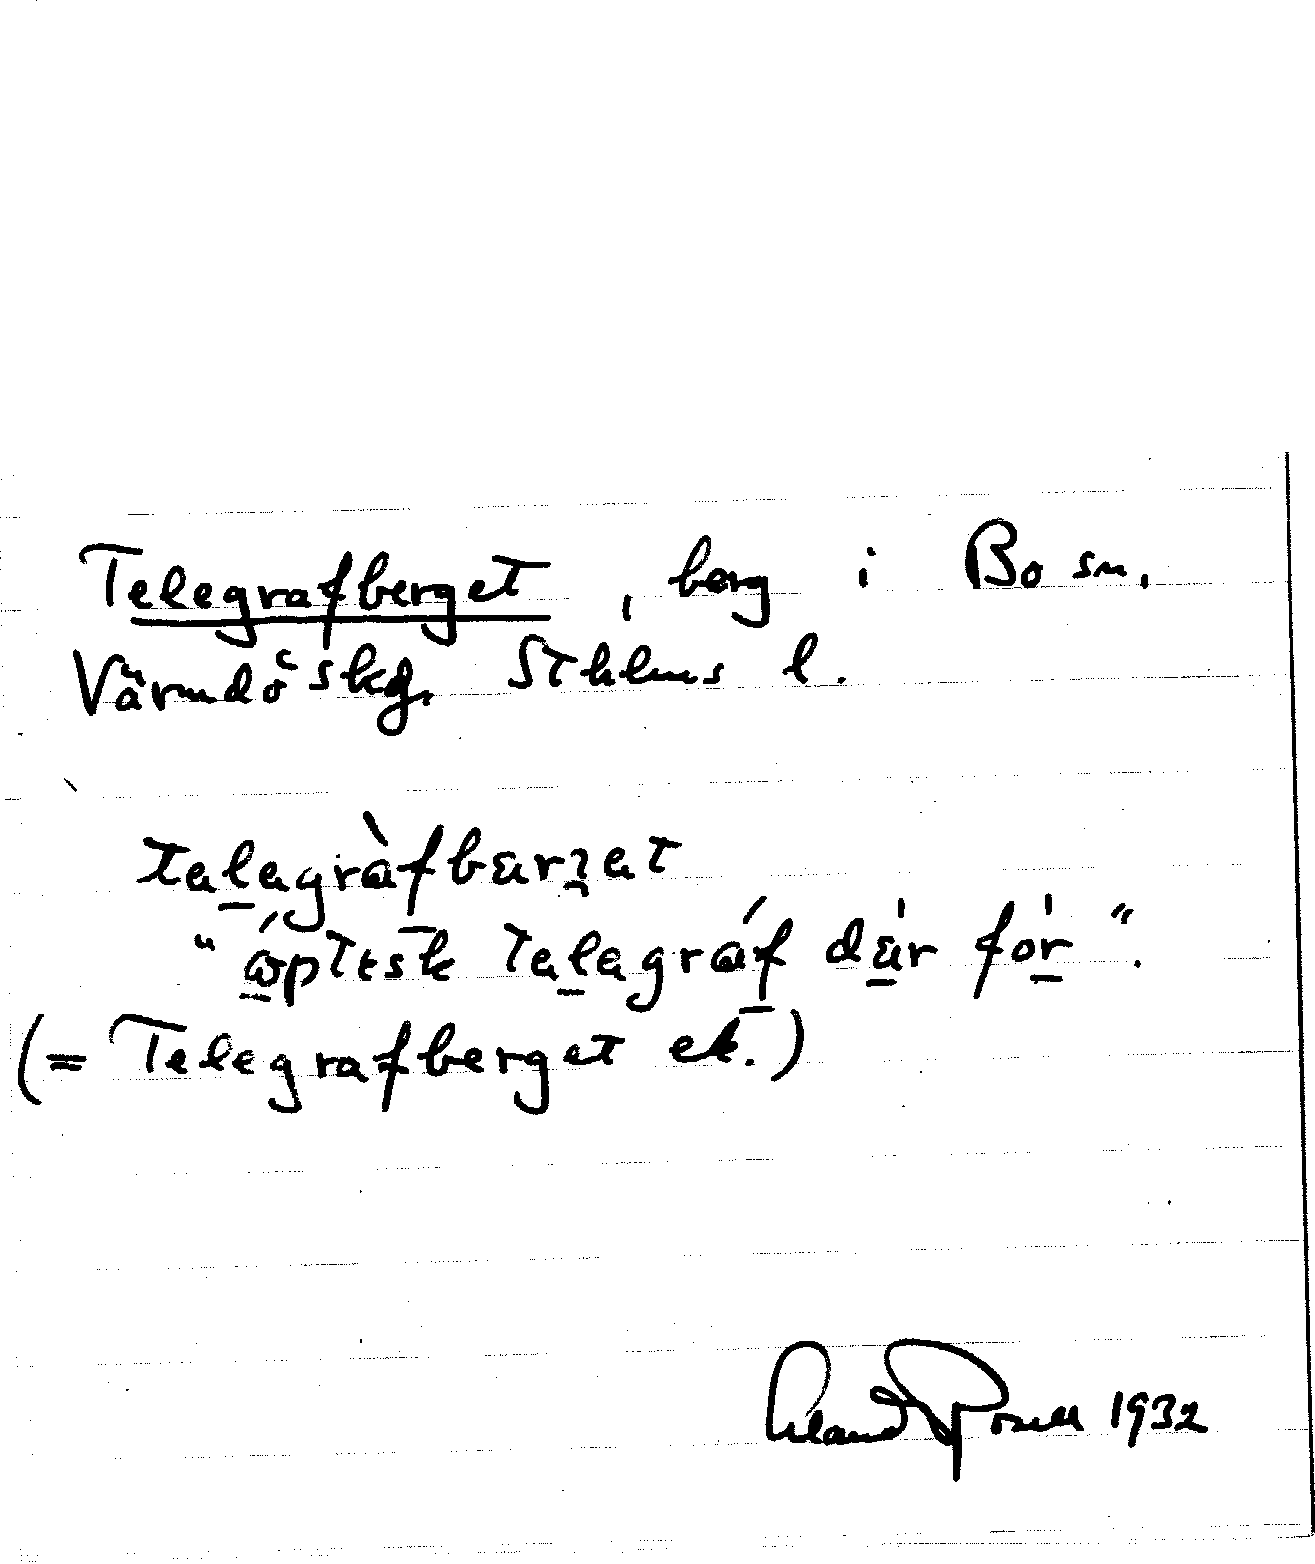 Telegrafberget, berg i Bo sn,
Värmdö skg, Sthlms l.
talagràfbærʒat
"ǿptısk talagráf dǽr fór".
(= Telegrafberget ek.)
1932